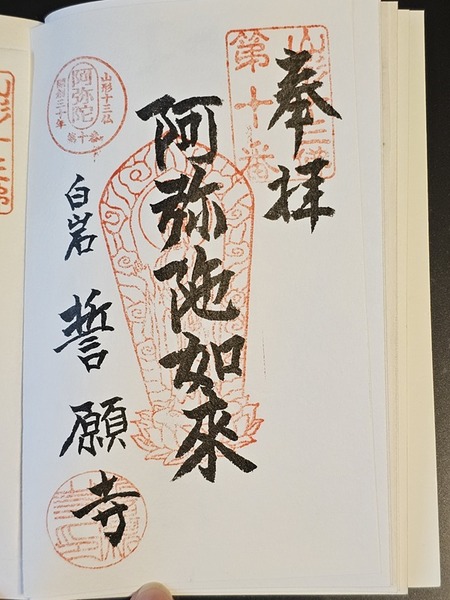 奉拝
山形十三佛
第十番
阿弥陀如來
山形十三仏
阿弥陀
第十番
白岩 誓願寺